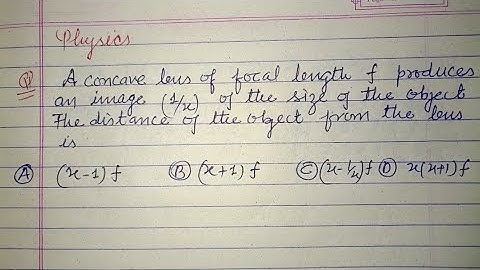 Physics
Q) A concave lens of focal length f produces
an image (1/x) of the size of the object
The distance of the object from the lens
is
(A) (x-1) f (B) (x+1) f (C) (x-1/x) f (D) x(x+1) f